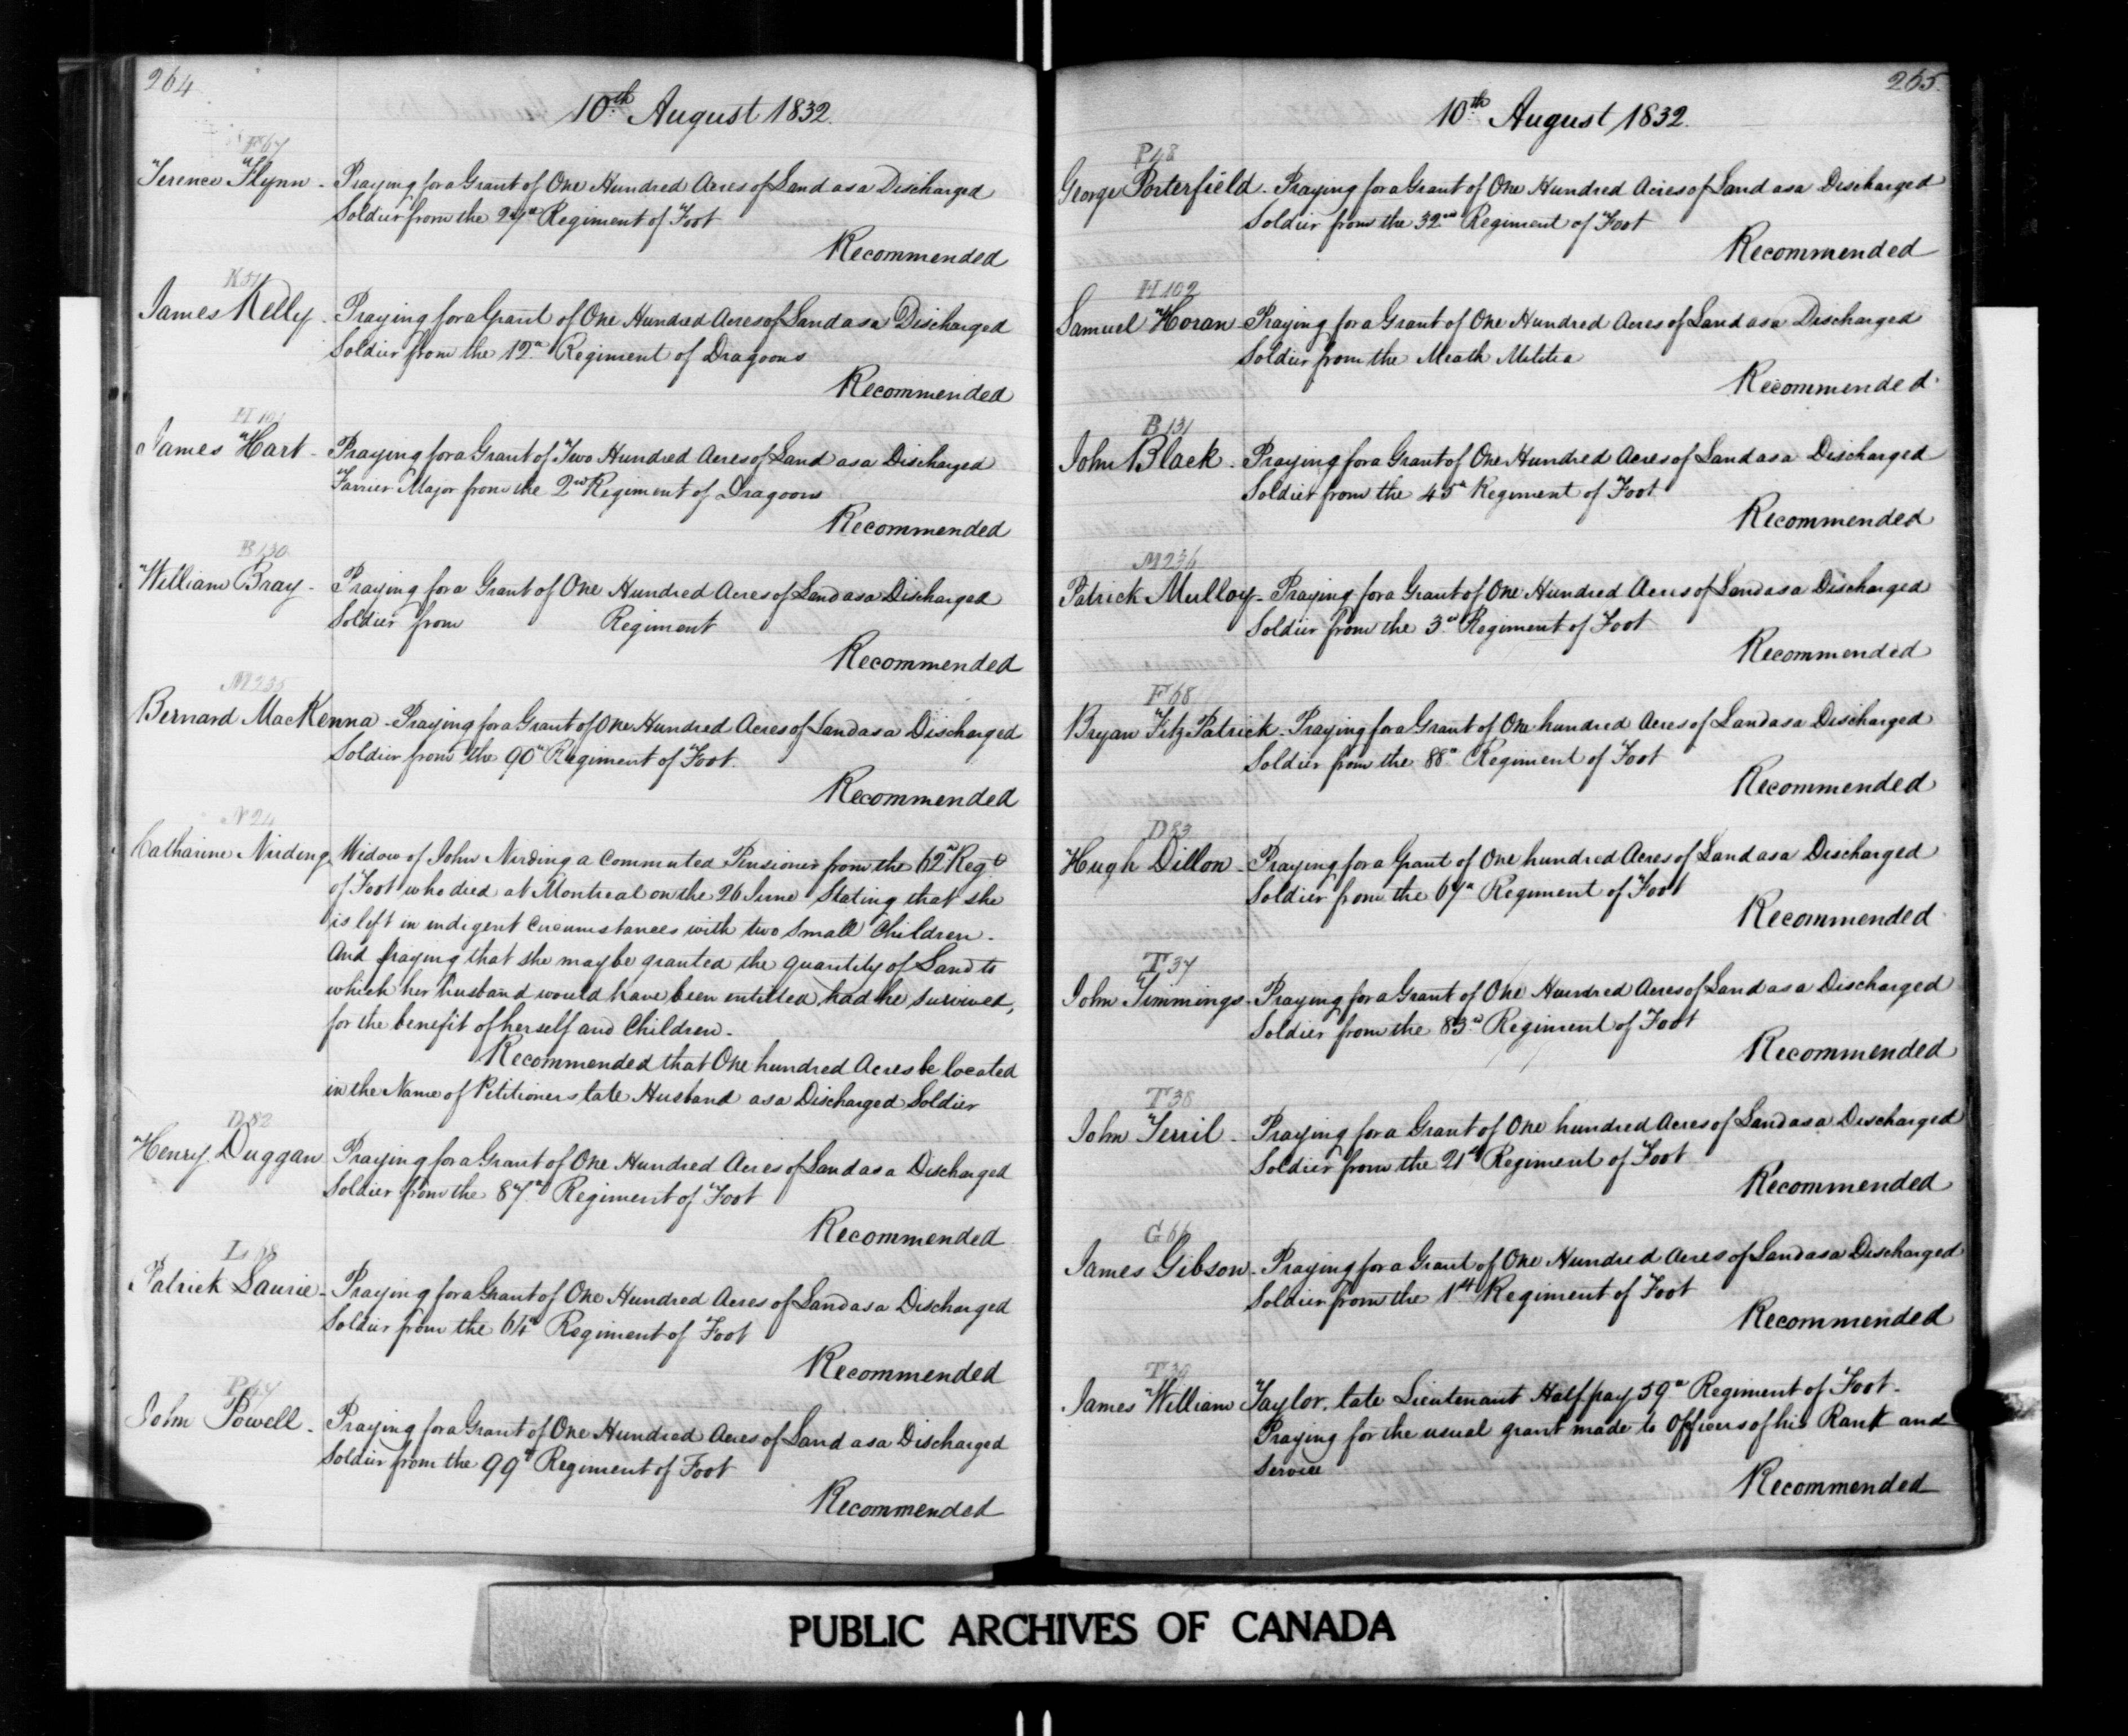 264
10th August 1832.
F 67
Terence Flynn - Praying for a Grant of One Hundred Acres of Land as a Discharged
Soldier from the 27th Regiment of Foot
Recommended
K
James Kelly. Praying for a Grant of One Hundred Acres of Land as a Discharged
Soldier from the 12th Regiment of Dragoons
Recommended
H 101
James Hart - Praying for a Grant of Two Hundred Acres of Land as a Discharged
Farrier Major from the 2nd Regiment of Dragoons
Recommended
B 130
William Bray - Praying for a Grant of One Hundred Acres of Land as a Discharged
Soldier from Regiment
Recommended
M 235
Bernard MacKenna - Praying for a Grant of One Hundred Acres of Land as a Discharged
Soldier from the 90th Regiment of Foot.
Recommended
N 24
Catharine Nirding Widow of John Nirding a Commuted Pensioner from the 62nd Regt
of Foot who died at Montreal on the 26 June Stating that she
is left in indigent Circumstances with two Small Children -
And praying that she may be granted the quantity of Land to
which her husband would have been entitled had he survived,
for the benefit of herself and Children -
Recommended that One hundred Acres be located
in the Name of Petitioners late Husband as a Discharged Soldier
D 82
Henry Duggan Praying for a Grant of One Hundred Acres of Land as a Discharged
Soldier from the 87th Regiment of Foot
Recommended
L 68
Patrick Laurie - Praying for a Grant of One Hundred Acres of Land as a Discharged
Soldier from the 64th Regiment of Foot
Recommended
John Powell - Praying for a Grant of One Hundred Acres of Land as a Discharged
Soldier from the 99th Regiment of Foot
Recommended
265.
10th August 1832.
P 48
George Porterfield - Praying for a Grant of One Hundred Acres of Land as a Discharged
Soldier from the 32nd Regiment of Foot
Recommended
H 102
Samuel Horan Praying for a Grant of One Hundred Acres of Land as a Discharged
Soldier from the Meath Militia
Recommended.
B 131
John Black - Praying for a Grant of One Hundred Acres of Land as a Discharged
Soldier from the 45th Regiment of Foot
Recommended
M 236
Patrick Mulloy - Praying for a Grant of One Hundred Acres of Land as a Discharged
Soldier from the 3rd Regiment of Foot
Recommended
F 68
Bryan FitzPatrick - Praying for a Grant of One hundred Acres of Land as a Discharged
Soldier from the 88th Regiment of Foot
Recommended
D 83
Hugh Dillon - Praying for a Grant of One hundred Acres of Land as a Discharged
Soldier from the 67th Regiment of Foot
Recommended
T 37
John Timmings - Praying for a Grant of One Hundred Acres of Land as a Discharged
Soldier from the 83rd Regiment of Foot
Recommended
T 38
John Terril - Praying for a Grant of One hundred Acres of Land as a Discharged
Soldier from the 21st Regiment of Foot
Recommended
G 66
James Gibson - Praying for a Grant of One Hundred Acres of Land as a Discharged
Soldier from the 1st Regiment of Foot
Recommended
T 39
James William Taylor, late Lieutenant Half pay 59th Regiment of Foot -
Praying for the usual grant made to Officers of his Rank and
Service
Recommended
PUBLIC ARCHIVES OF CANADA